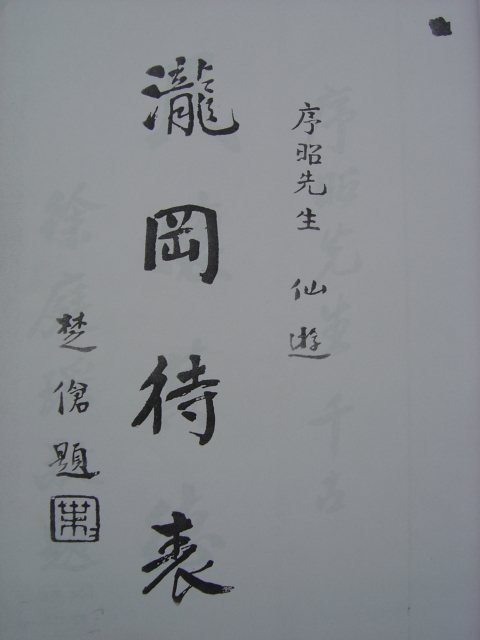 序昭先生 仙遊
瀧岡待表
楚傖題
葉